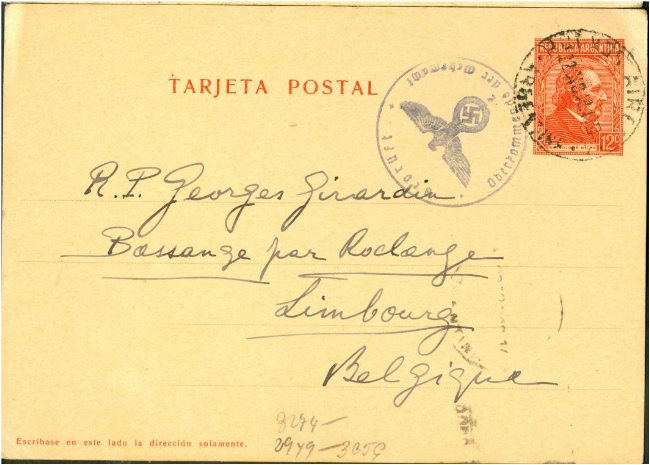 TARJETA POSTAL
REPUBLICA ARGENTINA
12c
Oberkommando der Wehrmacht
Geprüft
R. P. Georges Girardin
Bassange par Roclange
Limbourg
Belgique
3274-
2979-3059
Escríbase en este lado la dirección solamente.